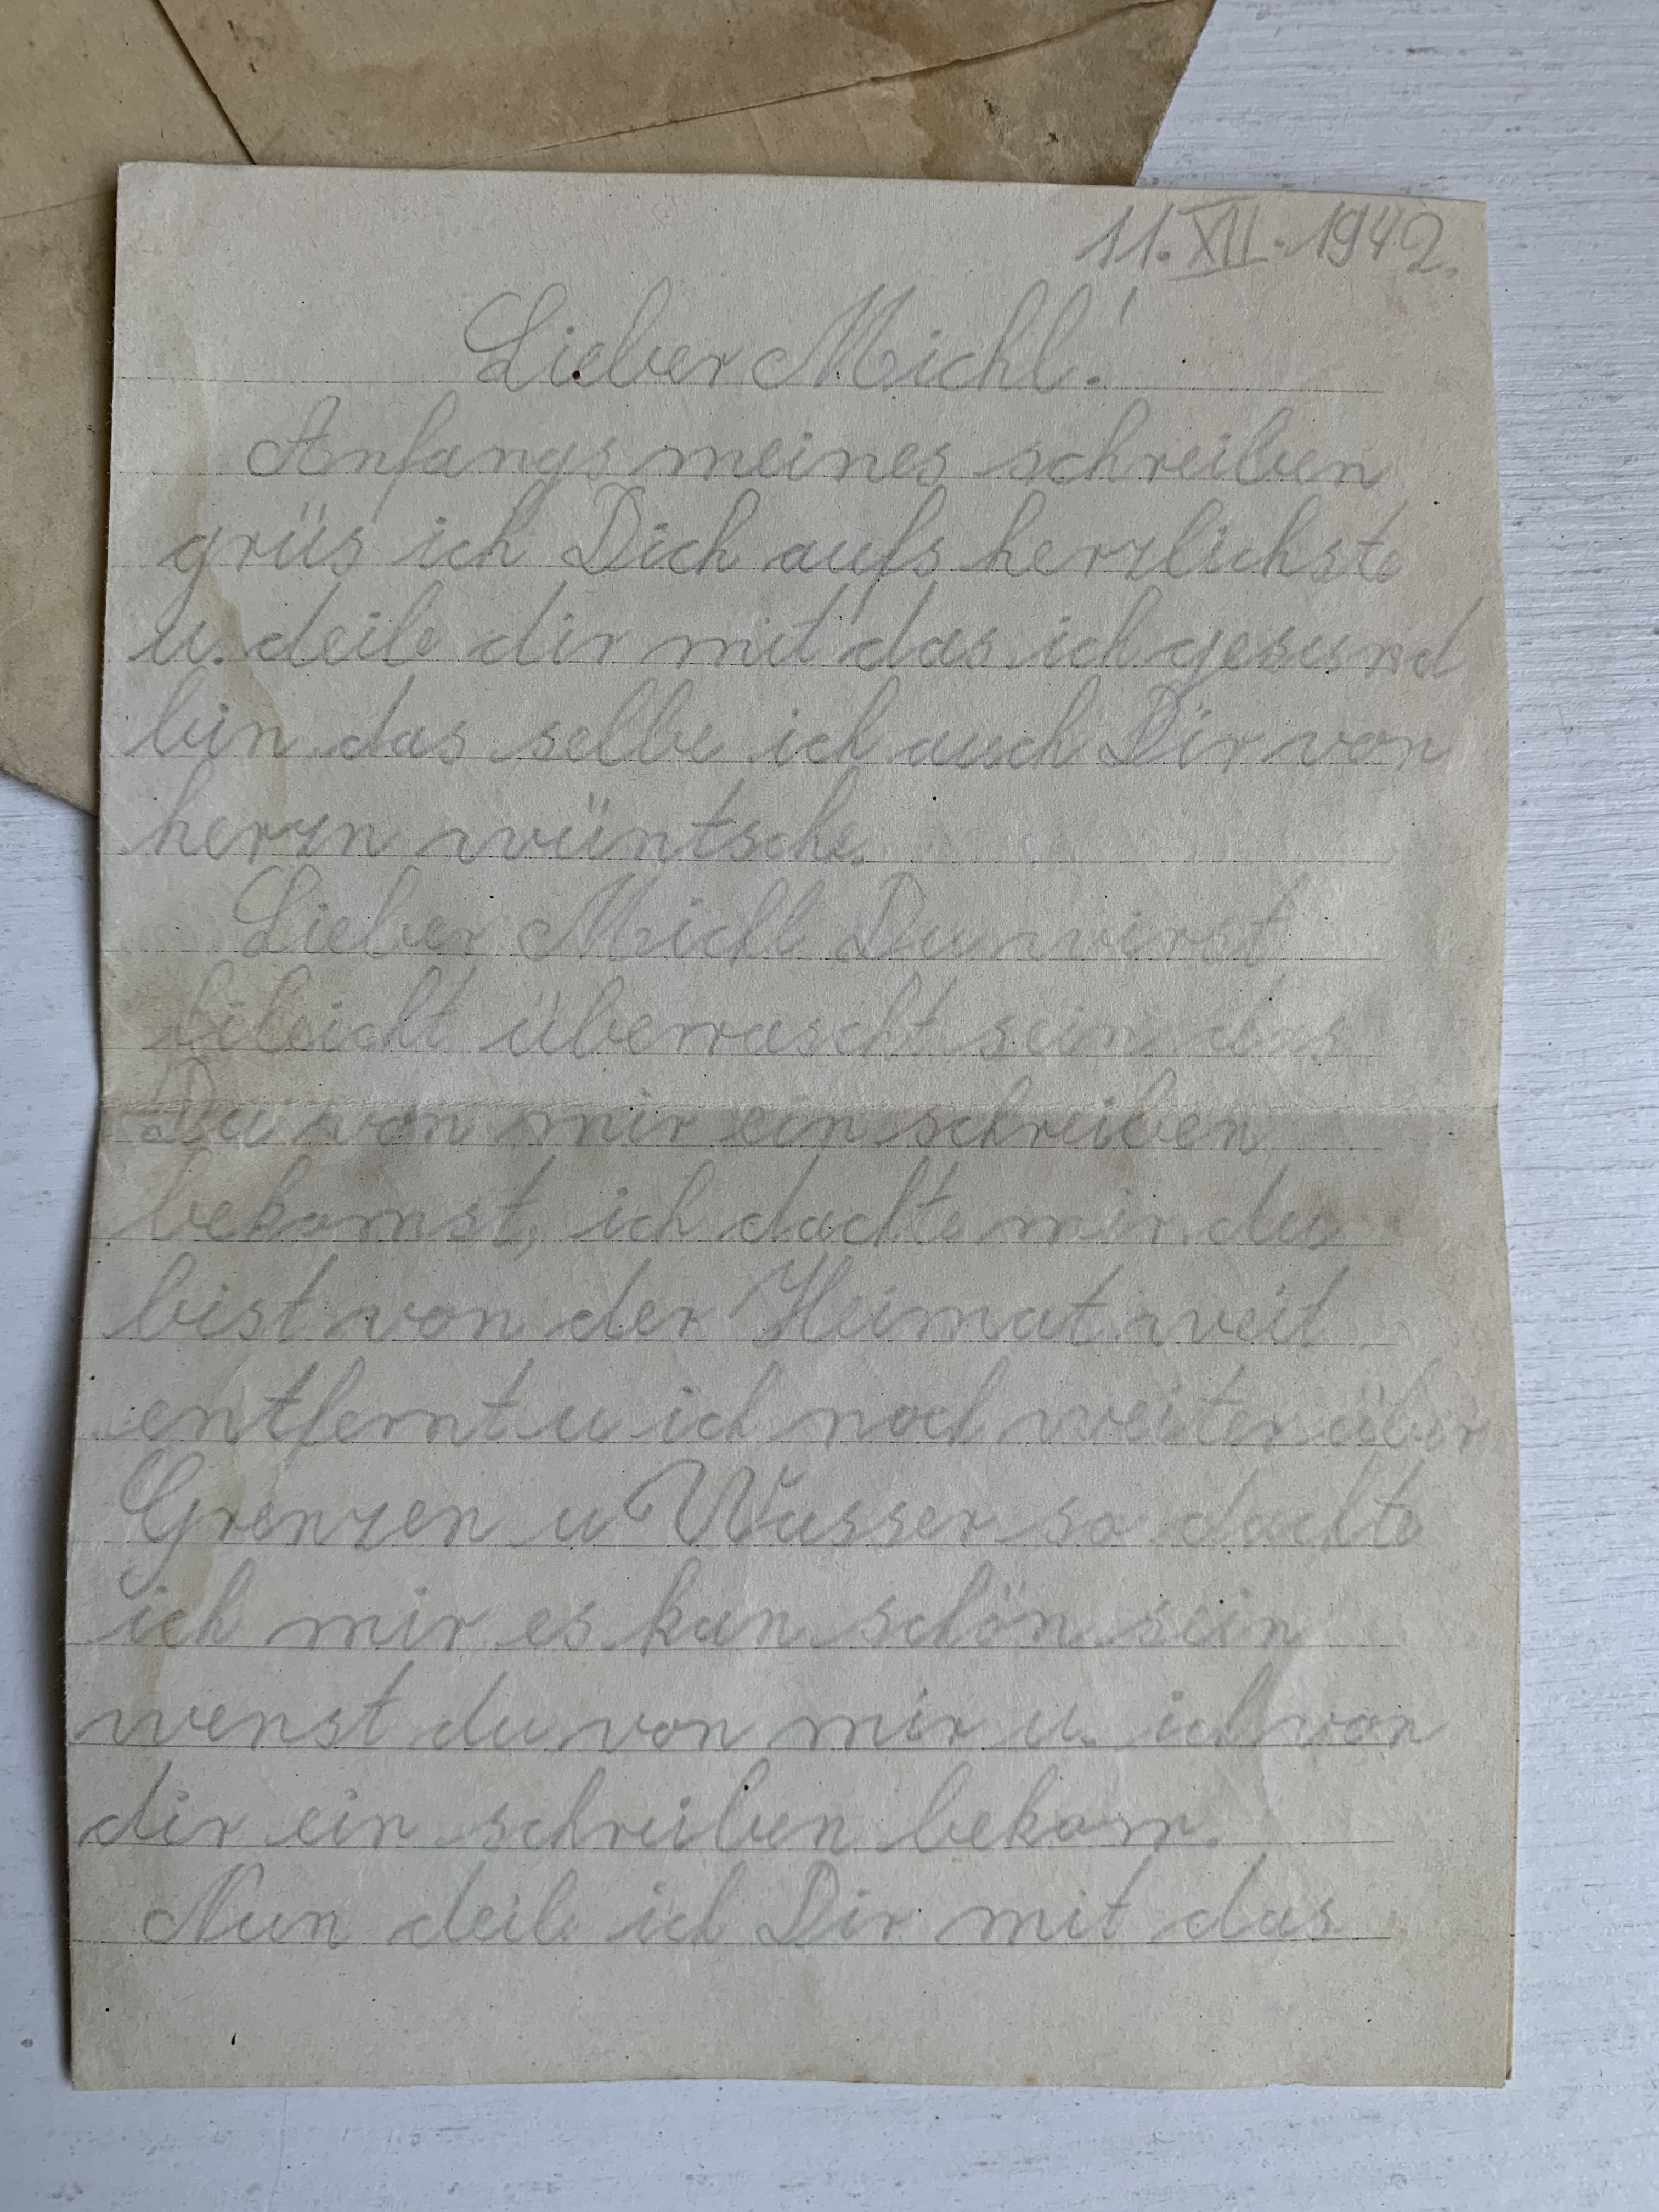 11. XII. 1942.
Lieber Michl!
Anfangs meines schreiben
grüs ich Dich aufs herzlichste
u. deile dir mit das ich gesund
bin das selbe ich auch Dir von
herzn wüntsche.
Lieber Michl Du wirst
fileicht überrascht sein das
Du von mir ein schreiben
bekomst, ich dachte mir du
bist von der Heimat weit
entfernt u ich noch weiter über
Grenzen u Wasser so dachte
ich mir es kan schön sein
wenst du von mir u. ich von
dir ein schreiben bekom.
Nun deile ich Dir mit das